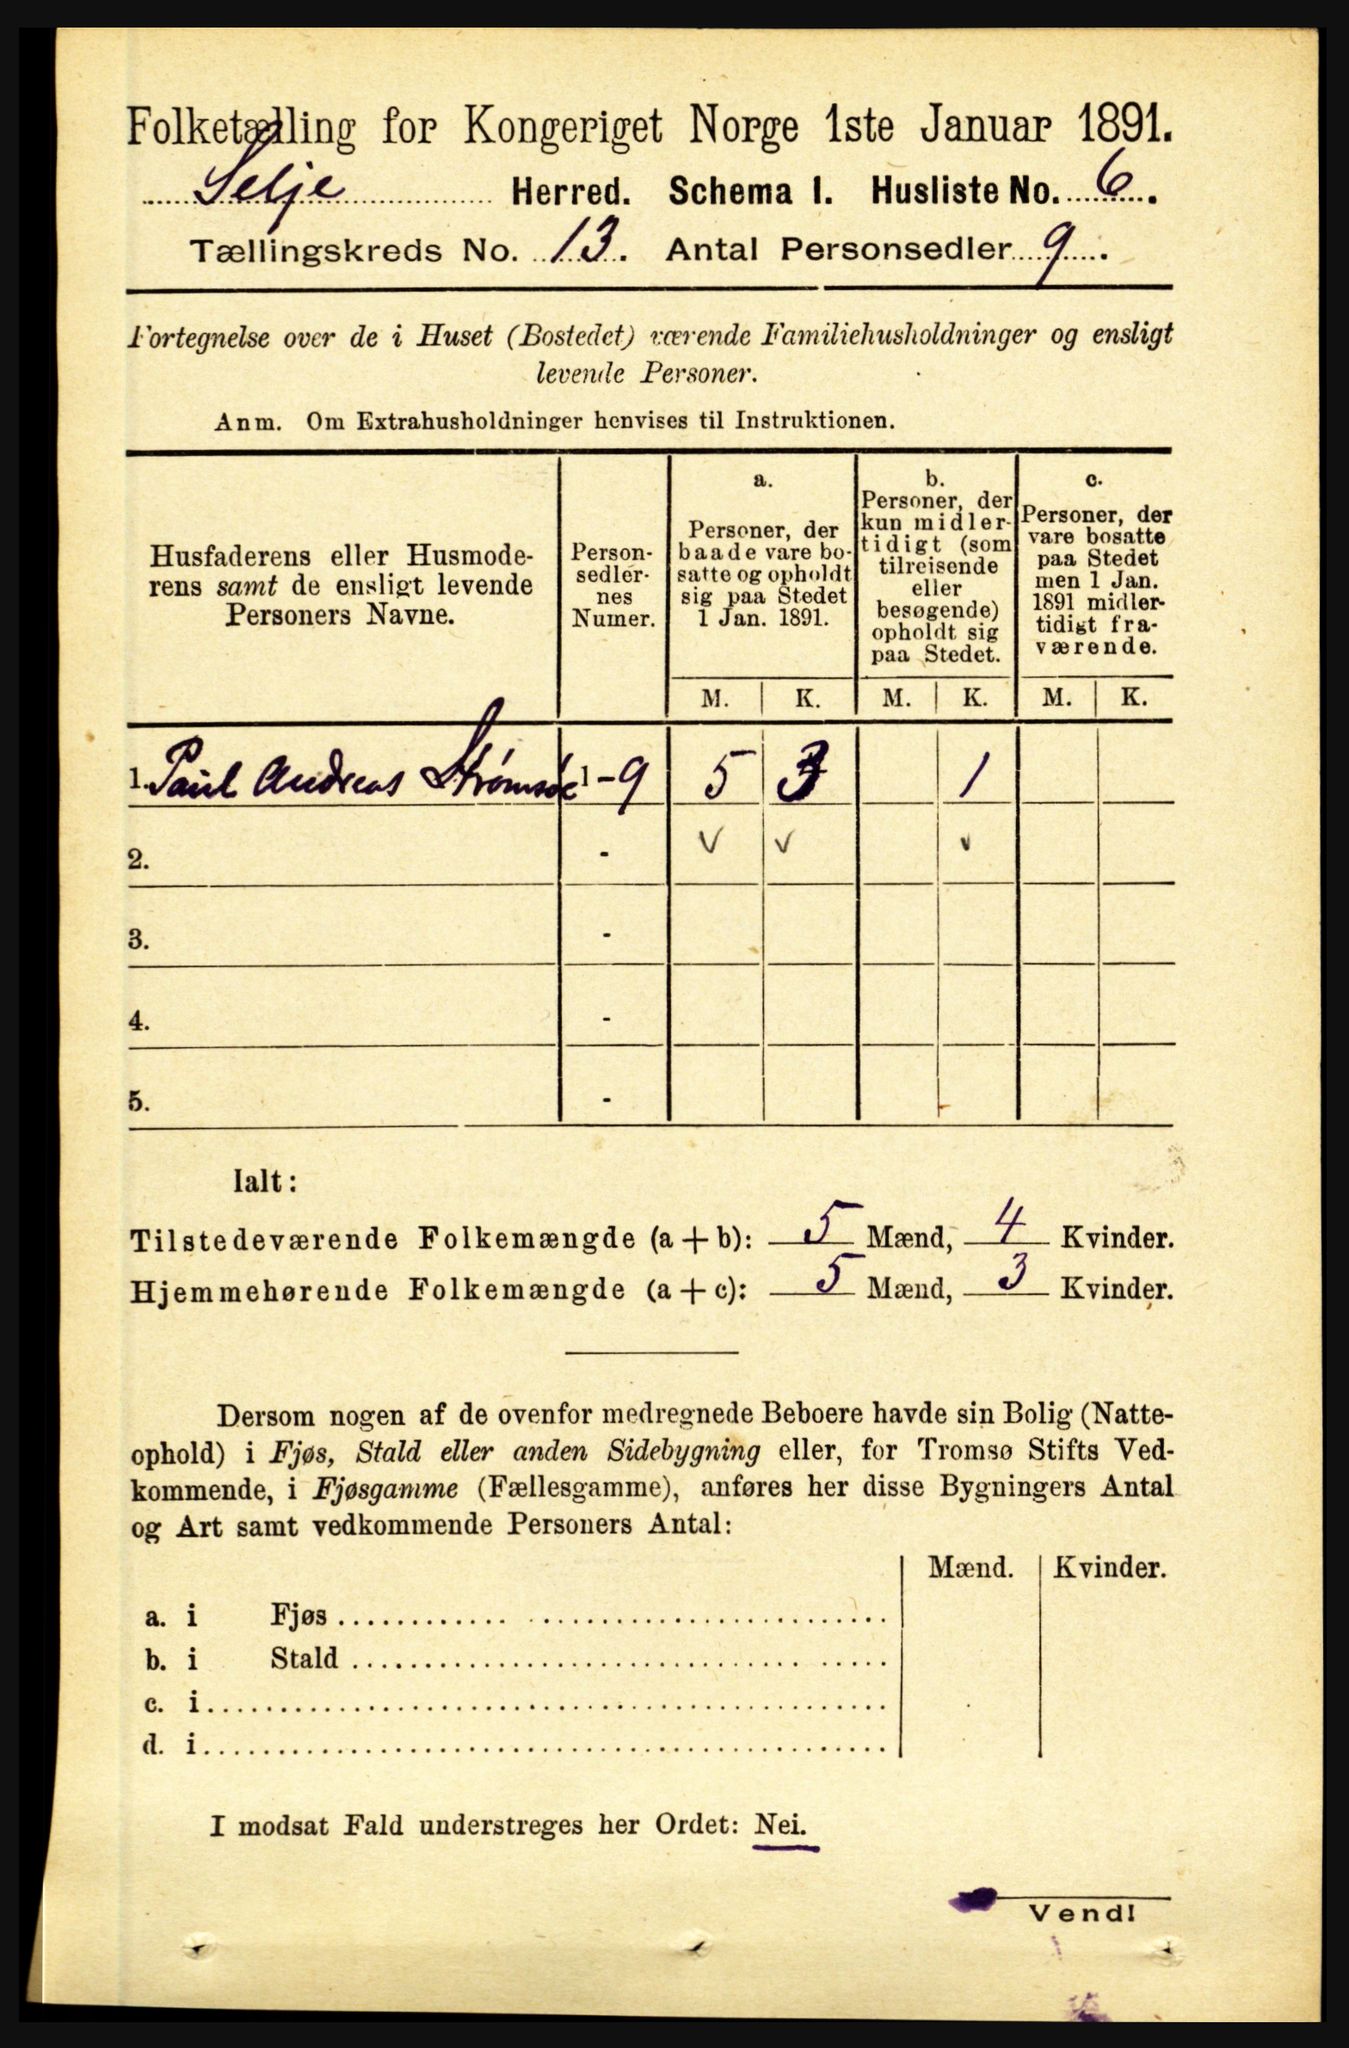 Folketælling for Kongeriget Norge 1ste Januar 1891.
Selje Herred. Schema I. Husliste No. 6.
Tællingskreds No. 13. Antal Personsedler 9.
Fortegnelse over de i Huset (Bostedet) værende Familiehusholdninger og ensligt
levende Personer.
Anm. Om Extrahusholdninger henvises til Instruktionen.
Husfaderens eller Husmode-
rens samt de ensligt levende
Personers Navne.
Person-
sedler-
nes
Numer.
a.
Personer, der
baade vare bo-
satte og opholdt
sig paa Stedet
1 Jan. 1891.
b.
Personer, der
kun midler-
tidigt (som
tilreisende
eller
besøgende)
opholdt sig
paa Stedet.
c.
Personer, der
vare bosatte
paa Stedet
men 1 Jan.
1891 midler-
tidigt fra-
værende.
M. K. M. K. M. K.
1. Paul Andreas Strømsøe 1-9 5 3 1
2. - v v v
3. -
4. -
5. -
Ialt:
Tilstedeværende Folkemængde (a + b): 5 Mænd, 4 Kvinder.
Hjemmehørende Folkemængde (a + c): 5 Mænd, 3 Kvinder.
Dersom nogen af de ovenfor medregnede Beboere havde sin Bolig (Natte-
ophold) i Fjøs, Stald eller anden Sidebygning eller, for Tromsø Stifts Ved-
kommende, i Fjøsgamme (Fællesgamme), anføres her disse Bygningers Antal
og Art samt vedkommende Personers Antal:
Mænd. Kvinder.
a. i Fjøs
b. i Stald
c. i
d. i
I modsat Fald understreges her Ordet: Nei.
Vend!